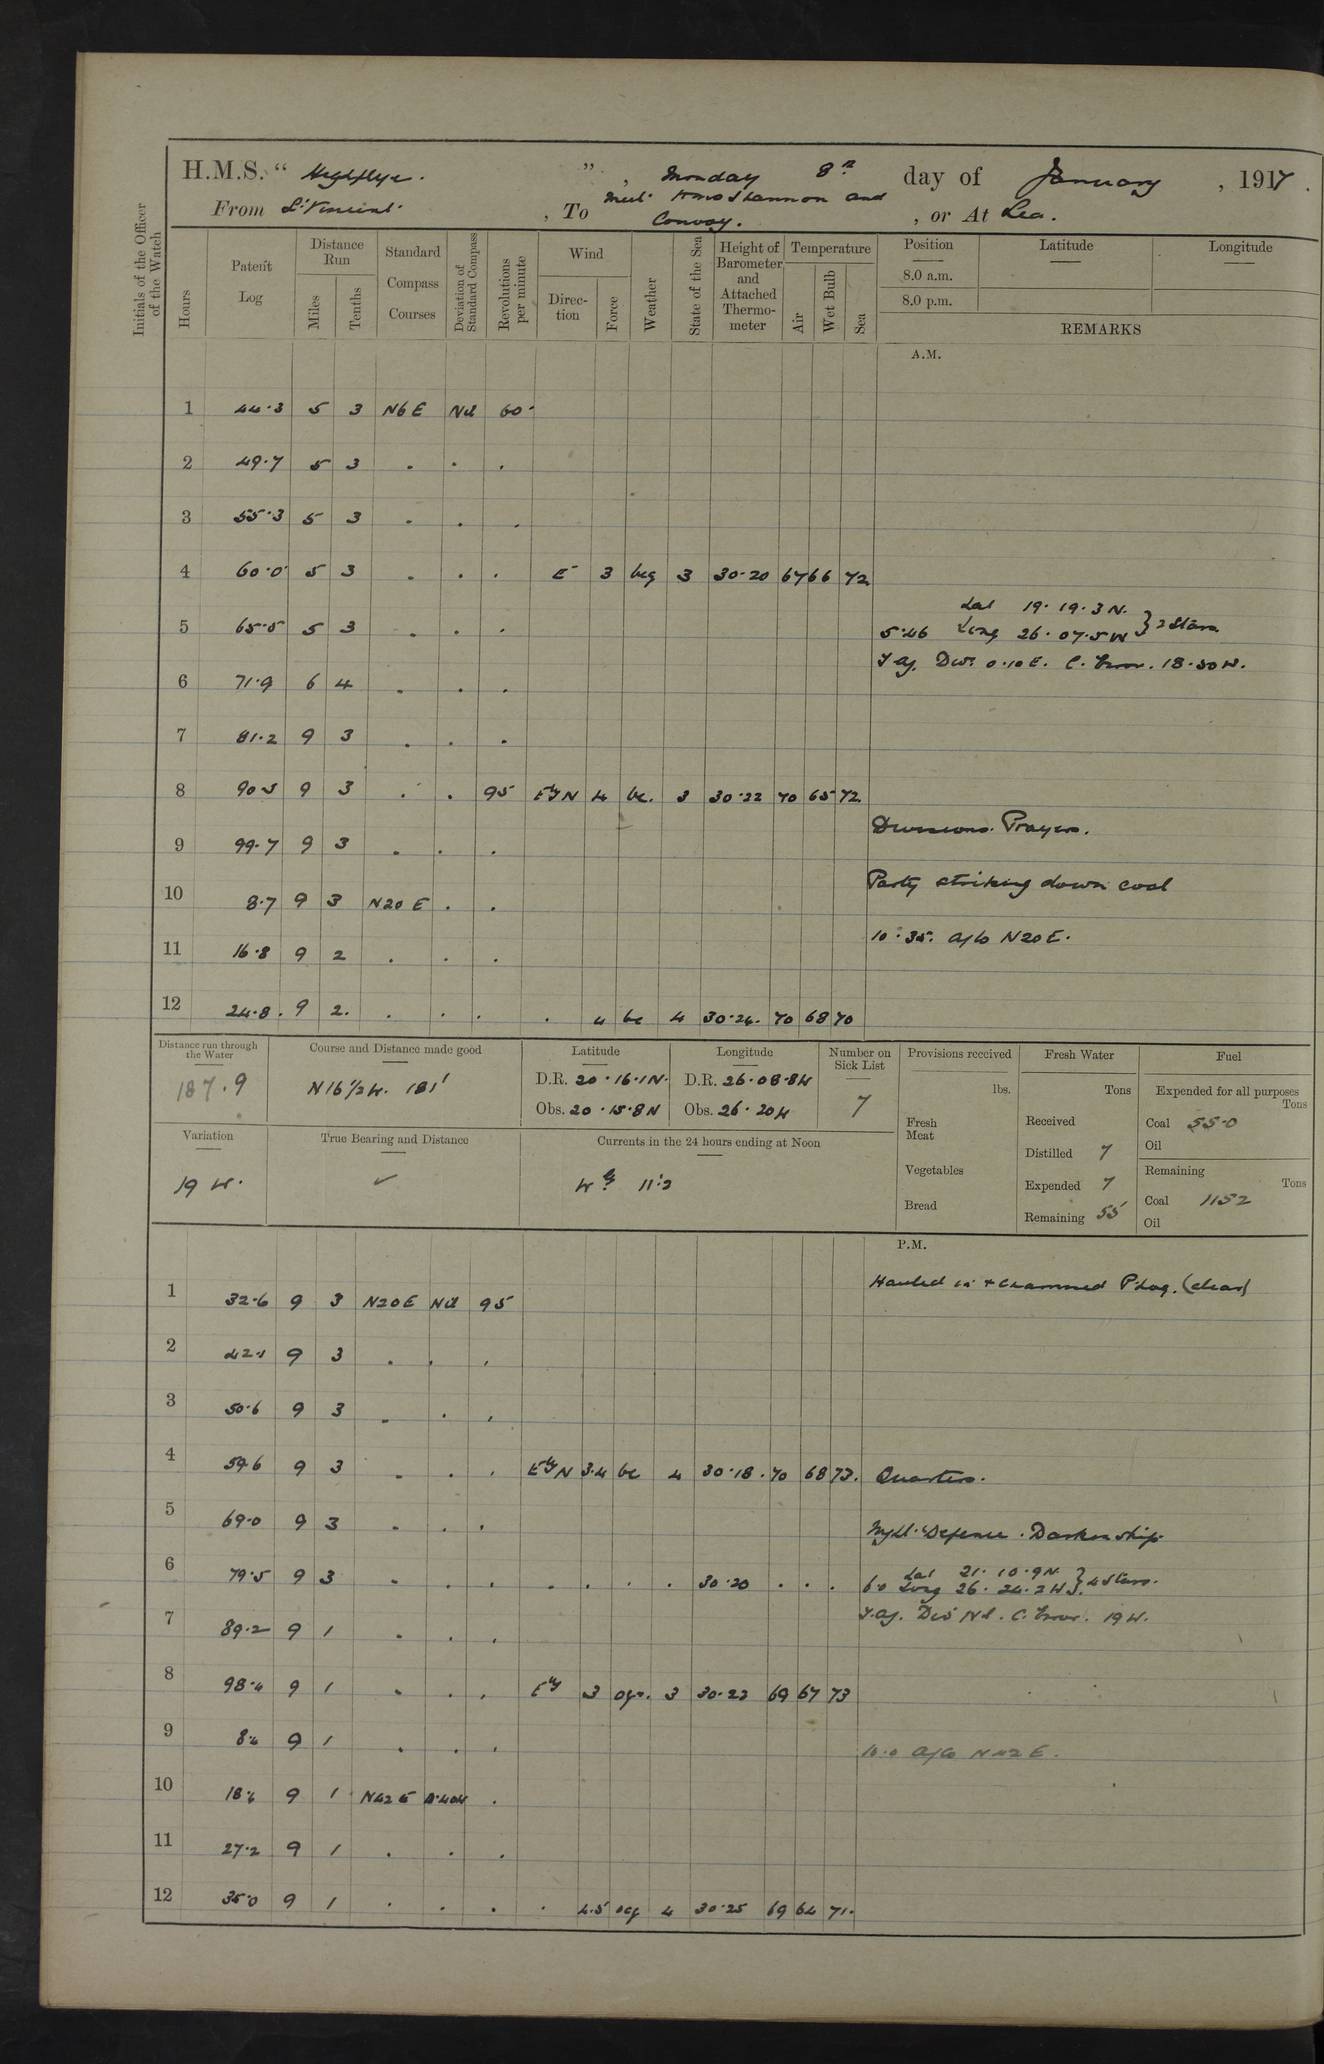 H.M.S. " Highflyer. ", Monday 8th day of January, 1917.
From St Vincent. , To meet HMS Shannon and Convoy. , or At Sea.
Initials of the Officer of the Watch
Hours
Patent Log
Distance Run
Miles
Tenths
Standard Compass Courses
Deviation of Standard Compass
Revolutions per minute
Wind
Direction
Force
Weather
State of the Sea
Height of Barometer and Attached Thermometer
Temperature
Air
Wet Bulb
Sea
Position
Latitude
Longitude
8.0 a.m.
8.0 p.m.
REMARKS
A.M.
1 44.3 5 3 N6E Nil 60.
2 49.7 5 3 . . .
3 55.3 5 3 . . .
4 60.0 5 3 . . . E 3 bcg 3 30.20 67 66 72
Lat 19.19.3N.
5 65.5 5 3 . . . 5.46 Long 26.07.5W } 2 Stars
Dev. 0.10E. C. Error. 18.50W.
6 71.9 6 4 . . .
7 81.2 9 3 . . .
8 90.5 9 3 . . 95 EbyN 4 bc. 3 30.22 70 65 72
Divisions. Prayers.
9 99.7 9 3 . . .
Party striking down coal
10 8.7 9 3 N20E . .
10.35. a/co N20E.
11 16.8 9 2 . . .
12 24.8. 9 2. . . . . 4 bc 4 30.24. 70 68 70
Distance run through the Water
187.9
Course and Distance made good
N16½W. 181'
Latitude
D.R. 20.16.1N.
Obs. 20.15.8N
Longitude
D.R. 26.08.8W
Obs. 26.20W
Number on Sick List
7
Provisions received
lbs.
Fresh Meat
Vegetables
Bread
Fresh Water
Tons
Received
Distilled 7
Expended 7
Remaining 55
Fuel
Expended for all purposes
Tons
Coal 55.0
Oil
Remaining
Tons
Coal 1152
Oil
Variation
19 W.
True Bearing and Distance
✓
Currents in the 24 hours ending at Noon
Wly 11.2
P.M.
Hauled in + examined P. Log. (clear)
1 32.6 9 3 N20E Nil 95
2 42.1 9 3 . . .
3 50.6 9 3 . . .
4 59.6 9 3 . . . EbyN 3.4 bc 4 30.18. 70 68 73. Quarters.
5 69.0 9 3 . . .
Night Defence. Darken ship
6 79.5 9 3 . . . . . . . 30.20 . . . 6.0 Lat 21.10.9N Long 26.24.2W } 4 Stars.
Dev Nil. C. Error. 19W.
7 89.2 9 1 . . .
8 98.4 9 1 . . . Ely 3 3 30.22 69 67 73
9 8.4 9 1 . . .
10.0 a/co N42E.
10 18.6 9 1 N42E 0.40W .
11 27.2 9 1 . . .
12 35.0 9 1 . . . . 4.5 ocg 4 30.25 69 64 71.